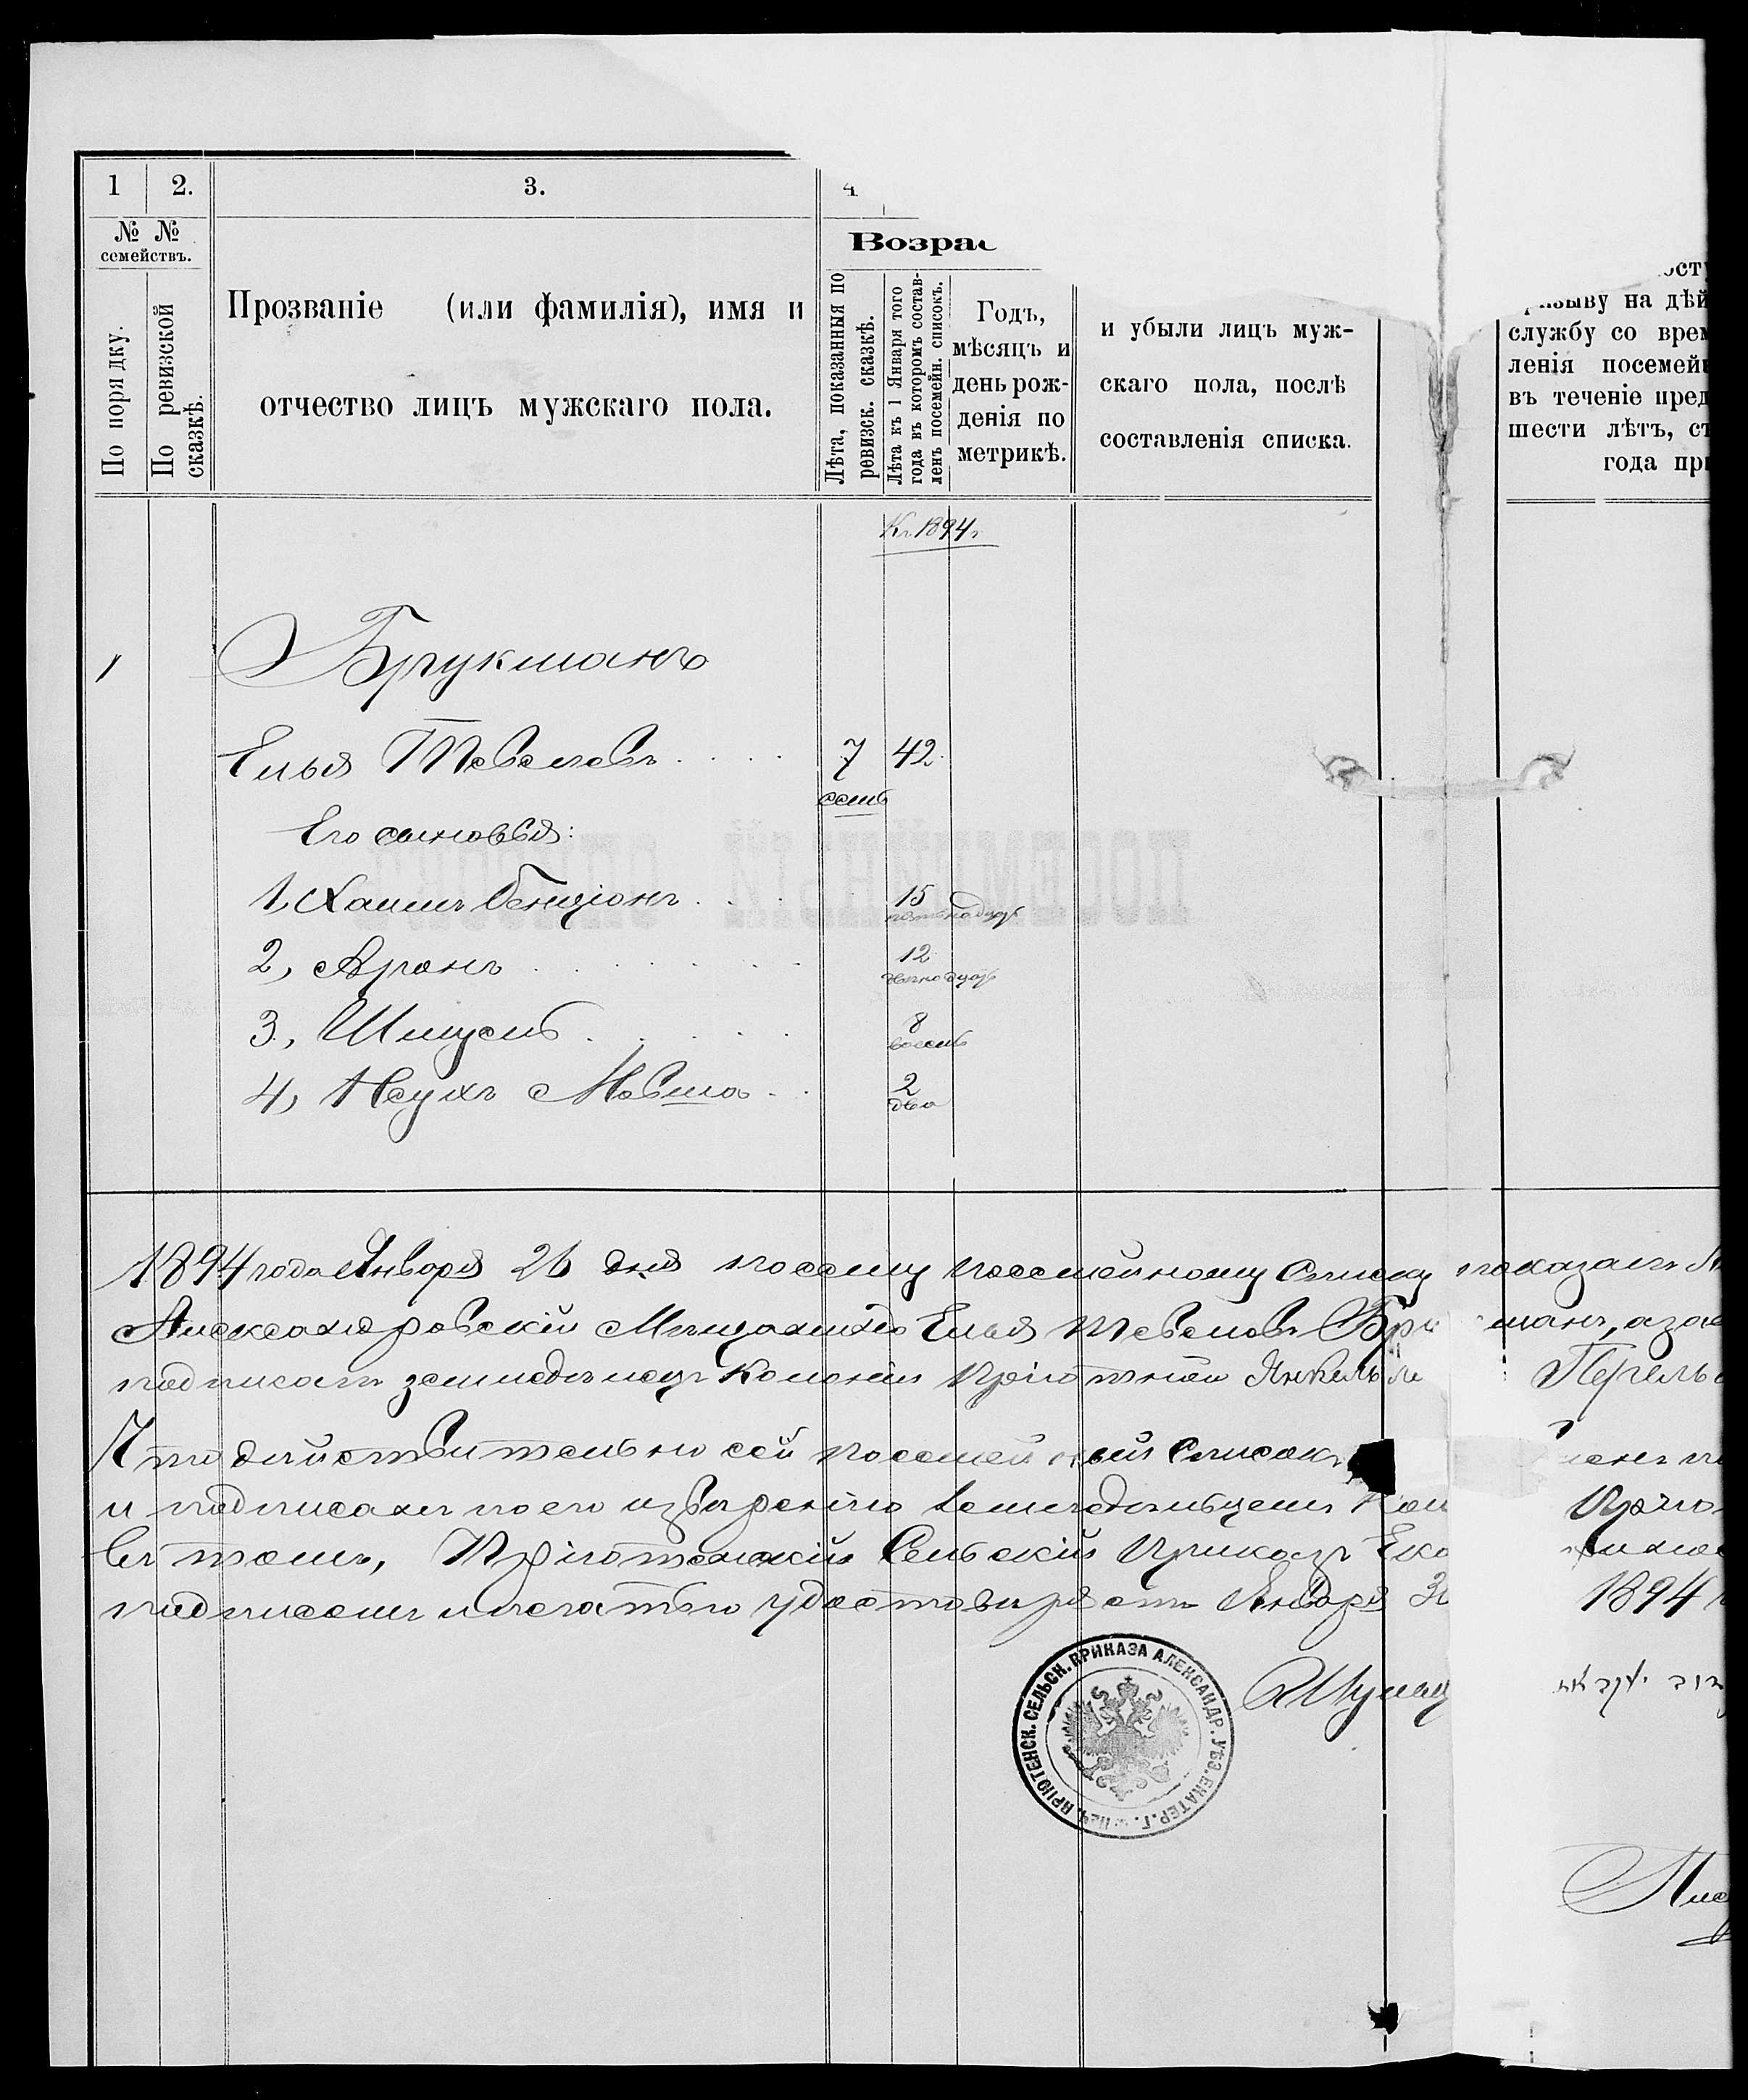 1
2.
3.
4
№ №
семействъ.
По порядку.
По ревизской
сказкѣ.
Прозваніе (или фамилія), имя и
отчество лицъ мужскаго пола.
Возрас
Лѣта, показанныя по
ревизск. сказкѣ.
Лѣта къ 1 Января того
года въ которомъ состав-
ленъ посемейн. списокъ.
Годъ,
мѣсяцъ и
день рож-
денія по
метрикѣ.
и убыли лицъ муж-
скаго пола, послѣ
составленія списка.
зыву на дѣй
службу со врем
ленія посемей
въ теченіе пред
шести лѣтъ, съ
года при
Къ 1894 г.
1
Брукманъ
Елья Тевелевъ 7 42
семь
Его сыновья:
1, Хаимъ Бенціонъ 15
пятнадцать
2, Аронъ 12
двенадцать
3, Шмуель 8
восемь
4, Неухъ Мовша 2
два
ПОСЕМЕЙНЫЙ СПИСОКЪ
1894 года Января 26 дня по сему посемейному списку показалъ
Александровскій Мещанинъ Елья Тевелевъ Бру манъ, а за
подписалъ земледелецъ Колоніи Пріютной Янкель Перель
Что действительно сей посемейный Списокъ
и подписанъ по его изверенію Земледельцемъ Кол Пріют
въ томъ, Пріютенскій Сельскій Приказъ Ека
подписомъ и печатью удостоверяетъ Января 30 1894
Шульц
ПЕЧ. ПРІЮТЕНСК. СЕЛЬСК. ПРИКАЗА АЛЕКСАНДР. УѢЗ. ЕКАТЕР. Г.
Пис